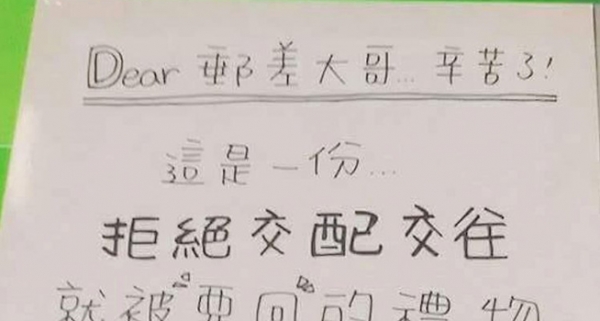 Dear 郵差大哥... 辛苦了!
這是一份...
拒絕交配交往
就被要回的禮物